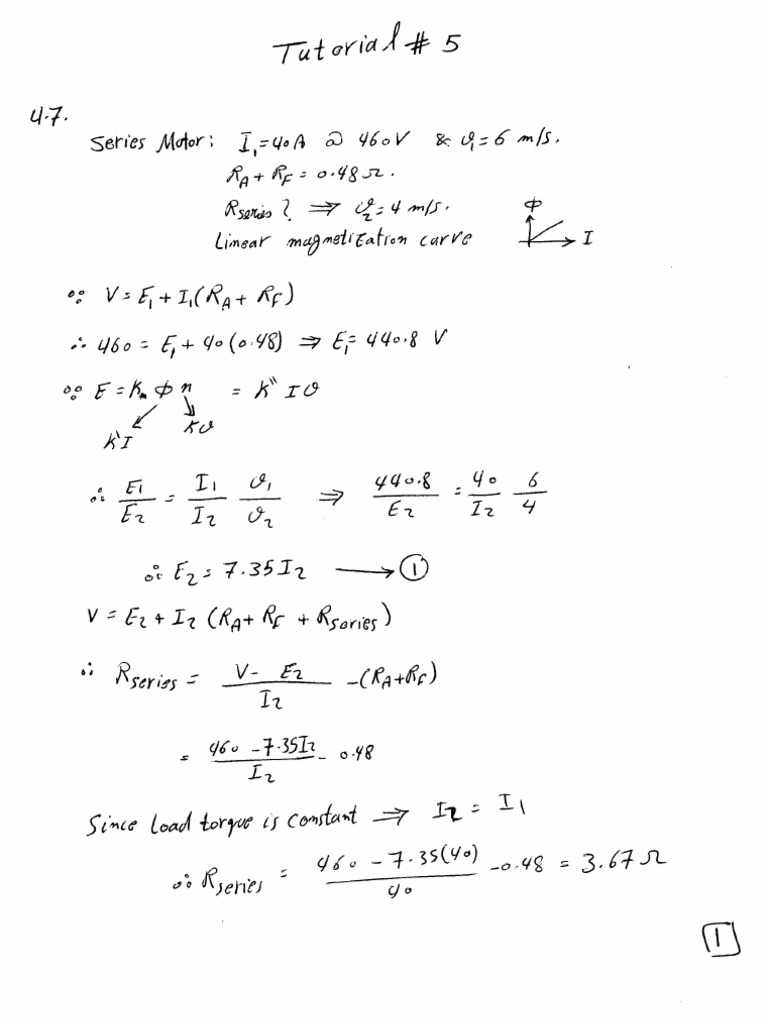 Tutorial # 5
4.7.
Series Motor: I₁=40A @ 460V & υ₁=6 m/s.
R_A + R_F = 0.48 Ω.
R_series ? ⇒ υ₂=4 m/s.
Linear magnetization curve
Φ
I
∵ V = E₁ + I₁(R_A + R_F)
∴ 460 = E₁ + 40(0.48) ⇒ E₁= 440.8 V
∵ E = K_m Φ n = K" I υ
K'I
Kυ
∴ E₁/E₂ = I₁/I₂ υ₁/υ₂ ⇒ 440.8/E₂ = 40/I₂ 6/4
∴ E₂ = 7.35 I₂ → ①
V = E₂ + I₂ (R_A + R_F + R_series)
∴ R_series = (V - E₂)/I₂ - (R_A+R_F)
= (460 - 7.35I₂)/I₂ - 0.48
Since load torque is constant ⇒ I₂ = I₁
∴ R_series = (460 - 7.35(40))/40 - 0.48 = 3.67 Ω
1